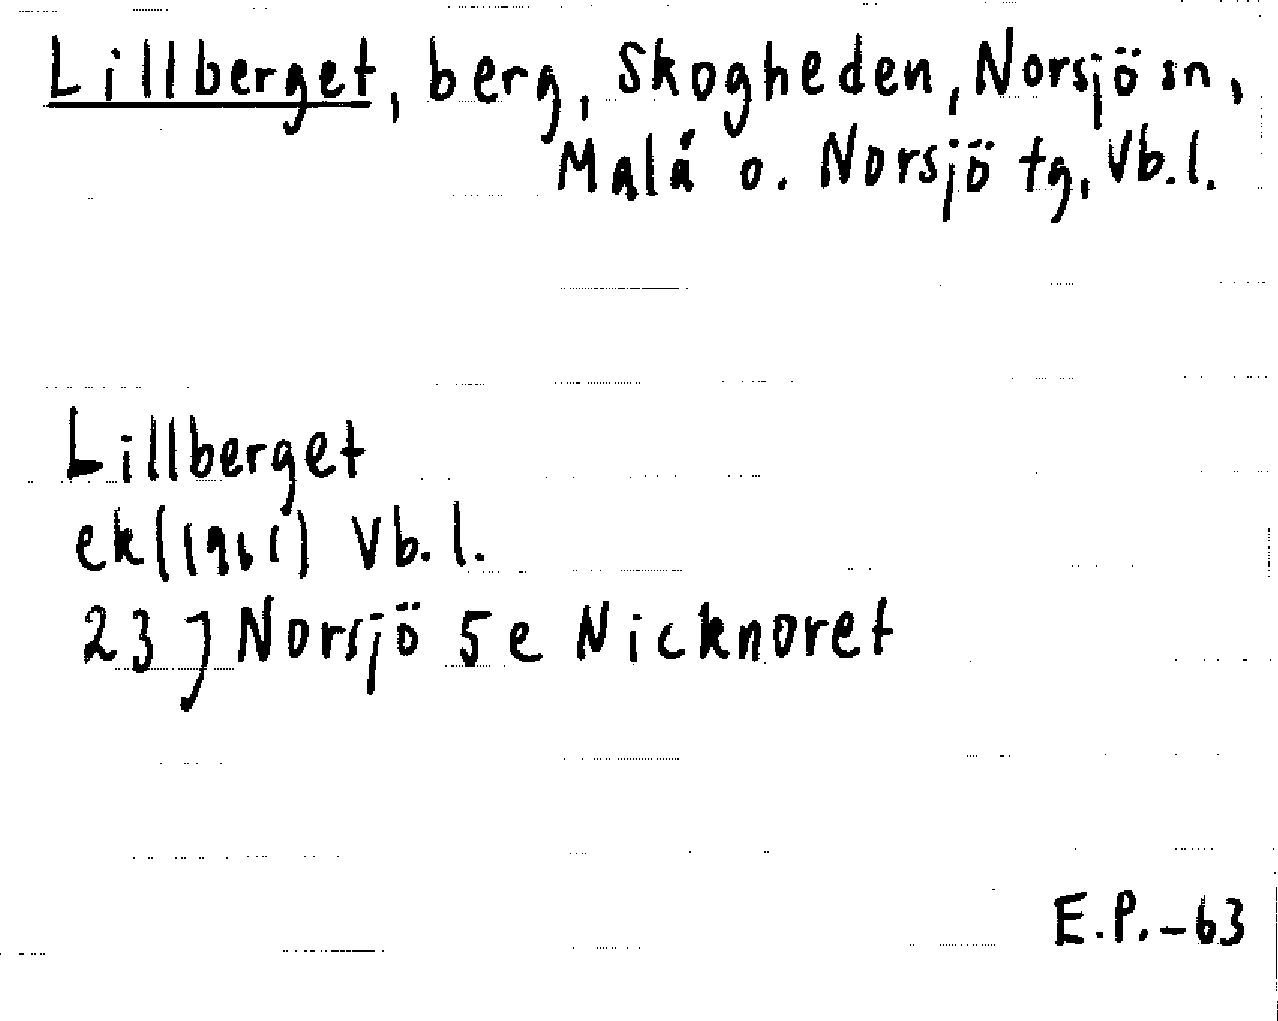 Lillberget, berg, Skogheden, Norsjö sn,
Malå o. Norsjö tg, Vb.l.
Lillberget
ek(1961) Vb.l.
23 J Norsjö 5e Nicknoret
E.P.-63